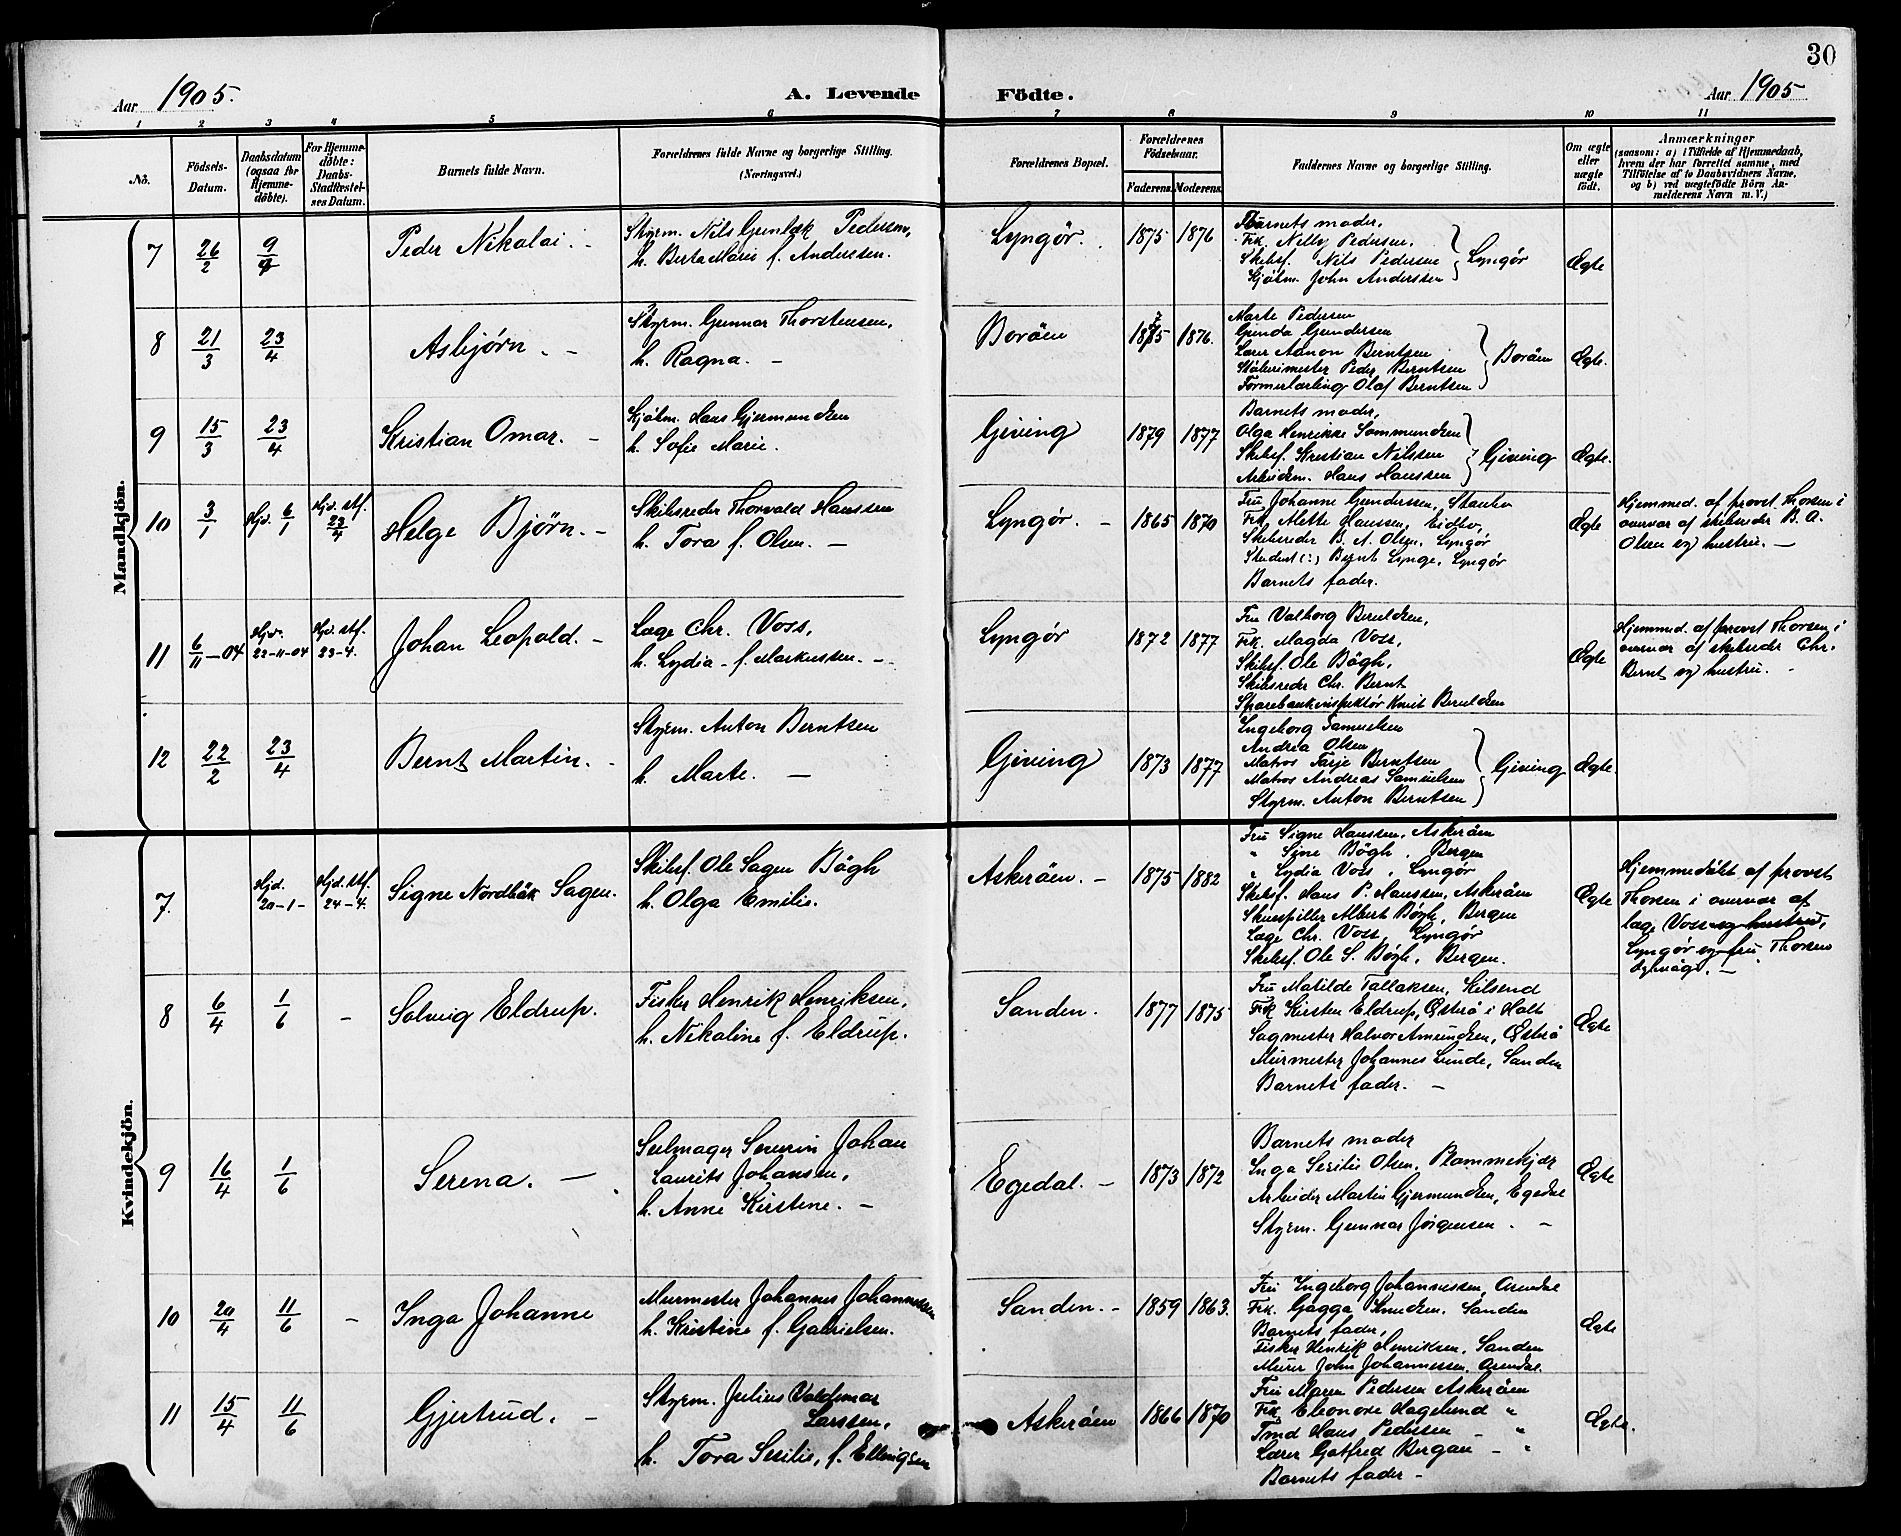 30
Aar 1905.
A. Levende Födte.
Aar 1905
1 2 3 4 5 6 7 8 9 10 11
No.
Födsels-Datum.
Daabsdatum (ogsaa for Hjemmedöbte).
For Hjemmedöbte: Daabs-Stadfæstelses Datum.
Barnets fulde Navn.
Forældrenes fulde Navne og borgerlige Stilling.
(Næringsvei.)
Forældrenes Bopæl.
Forældrenes Födselsaar.
Faderens. Moderens.
Faddernes Navne og borgerlige Stilling.
Om ægte eller uægte födt.
Anmærkninger
(saasom: a) i Tilfælde af Hjemmedaab, hvem der har forrettet samme, med Tilföielse af to Daabsvidners Navne, og b) ved uegtefödte Börn Anmelderens Navn m. V.)
Mandkjön.
7 26/2 9/4 Peder Nikolai. -
Styrm. Nils Gunlæk Pedersen,
h. Berta Marie f. Anderssen.
Lyngör. 1875 1876
Barnets moder,
Frk. Nelly Pedersen,
Skibsf. Nils Pedersen
Kjöbm. John Anderssen
Lyngör Ægte
8 21/3 23/4 Asbjørn. -
Styrm. Gunnar Thorstensen,
h. Ragna. -
Boröen 1875 1876.
Marte Pedersen
Gunda Gundersen
Lærer Aanon Berntsen
Støberimester Peder Berntsen
Formerlærling Olaf Berntsen
Boröen Ægte.
9 15/3 23/4 Kristian Omar. -
Kjöbm. Hans Gjermundsen
h. Sofie Marie.
Giving 1879 1877
Barnets moder,
Olga Henrikke Sommundsen
Skibsf. Kristian Nilssen
Arbeidsm. Hans Hanssen
Giving Ægte.
10 3/1 Hjd. 6/1 Hjd. stf. 23/4 Helge Bjørn. -
Skibsreder Thorvald Hanssen
h. Tora f. Olsen. -
Lyngör. - 1865 1870
Fru Johanne Gundersen,
Frk. Mette Hanssen, Eidbo,
Skibsreder B. A. Olsen, Lyngör
Student (:) Bernt Lynge, Lyngör
Barnets fader.
Ægte
Hjemmed. af provst Thorsen i
overvær af skibsreder B. A.
Olsen og hustru. -
11 6/11-04 Hjd. 22-11-04 Hjd. stf. 23-4. Johan Leopold. -
Læge Chr. Voss,
h. Lydia - f. Markussen. -
Lyngör 1872 1877
Fru Valborg Beruldsen,
Frk. Magda Voss,
Skibsf. Ole Bögh,
Skibsreder Chr. Bernt
Sparebankinspektör Knut Beruldsen
Ægte
Hjemmed. af provst Thorsen i
overvær af skibsreder Chr.
Bernt og hustru. -
12 22/2 23/4 Bernt Martin. -
Styrm. Anton Berntsen
h. Marte. -
Giving 1873 1877
Ingeborg Samuelsen
Andrea Olsen
Matros Tarje Berntsen
Matros Andreas Samuelsen
Styrm. Anton Berntsen
Giving Ægte.
Kvindekjön.
7. Hjd. 20-1- Hjd. stf. 24-4. Signe Nordbåk Sagen.
Skibsf. Ole Sagen Bögh
h. Olga Emilie.
Askeröen. - 1875 1882
Fru Signe Hanssen, Askeröen
" Sine Bögh, Bergen
" Lydia Voss, Lyngör
Skibsf. Hans P. Hanssen, Askeröen
Skuespiller Albert Bögh, Bergen
Læge Chr. Voss, Lyngör
Skibsf. Ole S. Bögh, Bergen.
Ægte
Hjemmedöbt af provst
Thorsen i overvær af
læge Voss og hustru,
Lyngör og fru Thorsen
8 6/4 1/6 - Solveig Eldrup.
Fisker Henrik Henriksen,
h. Nikoline f. Eldrup.
Sanden. 1877 1875
Fru Matilde Tallaksen, Kilsund
Frk Kirsten Eldrup, Østerå i Holt
Sagmester Halvor Amundsen, Østerå
Murmester Johannes Lunde, Sanden
Barnets fader. -
Ægte
9 16/4 1/6 Serena. -
Seilmager Severin Johan
Laurits Johansen,
h. Anne Kirstine. -
Egedal. - 1873 1872
Barnets moder
Inga Sesilie Olsen, Plommekjær
Arbeider Martin Gjermundsen, Egedal
Styrm. Gunnar Jörgensen. -
Ægte
10 20/4 11/6 - Inga Johanne
Murmester Johannes Johannessen
h. Kristine f. Gabrielsen.
Sanden. - 1859 1863.
Fru Ingeborg Johannessen, Arendal
Frk. Gagga Knudsen, Sanden
Barnets fader,
Fisker Henrik Henriksen, Sanden
Murer John Johannessen, Arendal.
Ægte
11 15/4 11/6 Gjertrud. -
Styrm. Julius Valdemar
Larssen,
h. Tora Sesilie, f. Ellingsen
Askeröen 1866 1870
Fru Maren Pedersen Askeröen
Frk. Eleonore Hagelund "
Tmd Hans Pedersen - "
Lærer Gotfred Bergan - "
Barnets fader -
Ægte.